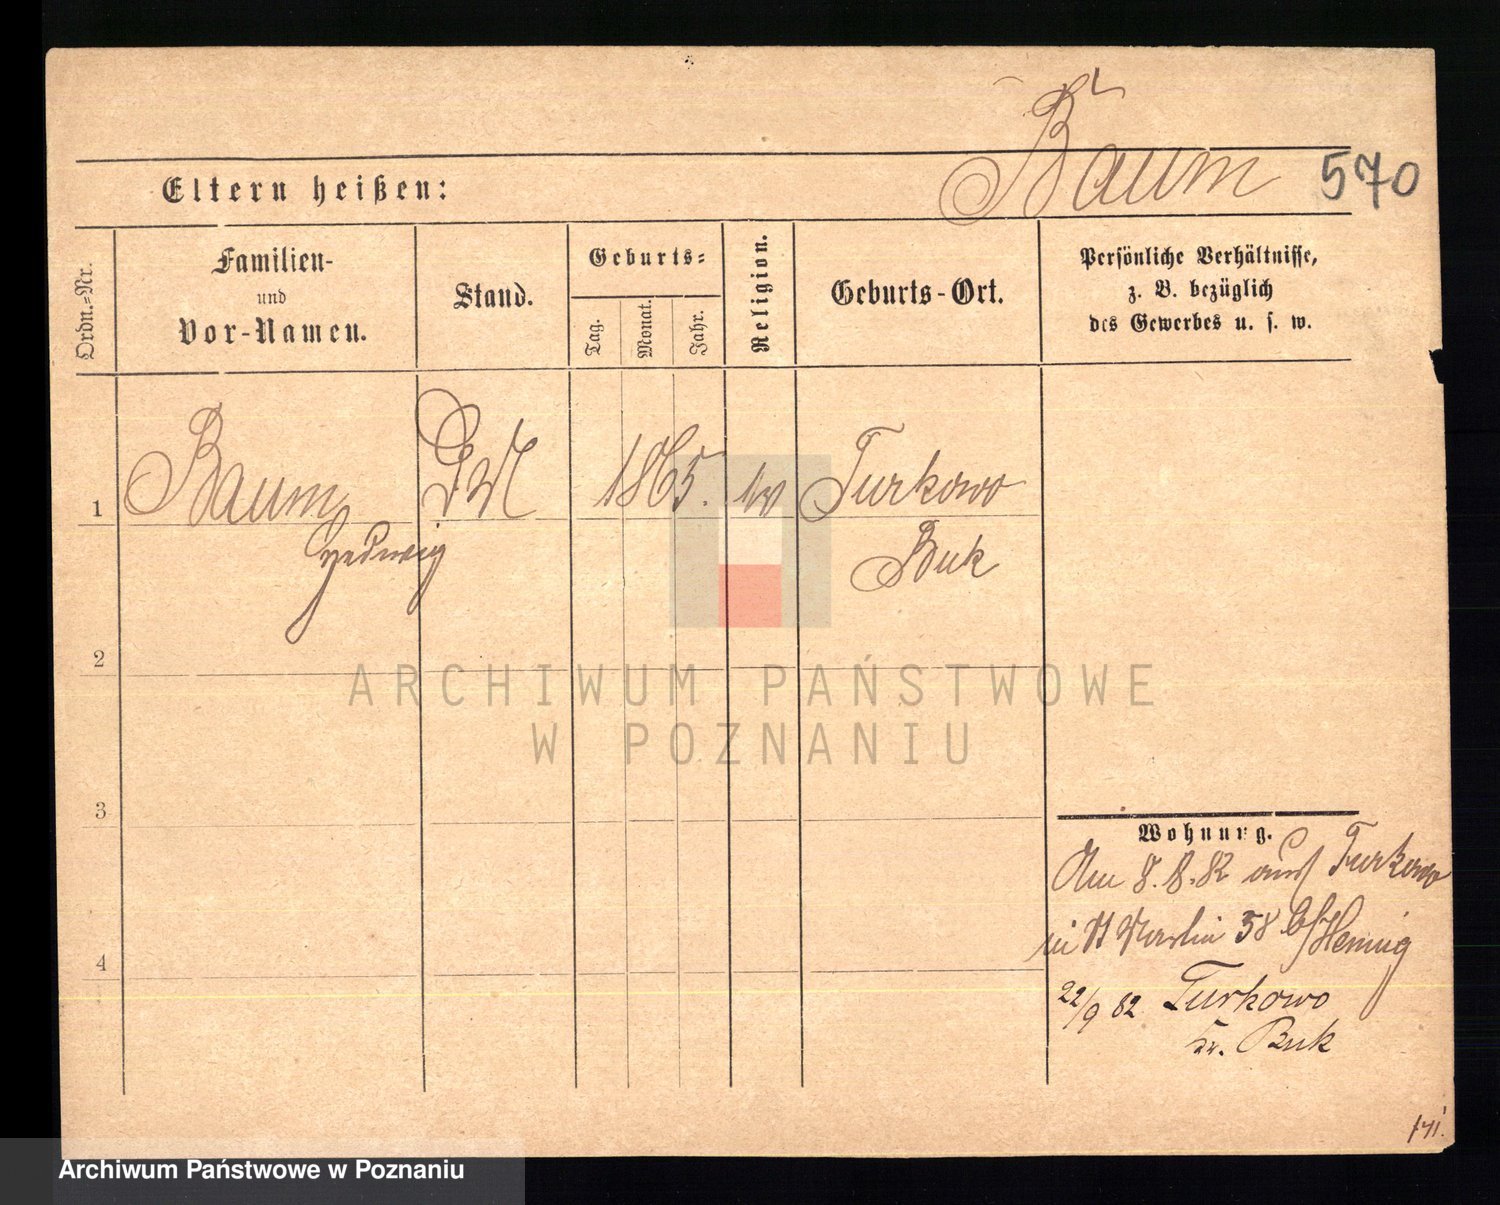 Baum 570
Eltern heißen:
Ordn.=Nr.
Familien-
und
Vor-Namen.
Stand.
Geburts=
Tag.
Monat.
Jahr.
Religion.
Geburts-Ort.
Persönliche Verhältnisse,
z. B. bezüglich
des Gewerbes u. s. w.
1 Baum 1865. Turkowo
Hedwig Buk
2
3
4
Wohnung.
Am 8.8.82 aus Turkowo
in St Martin 58 Hennig
22/9 82 Turkowo
Kr. Buk
ARCHIWUM PAŃSTWOWE
W POZNANIU
Archiwum Państwowe w Poznaniu